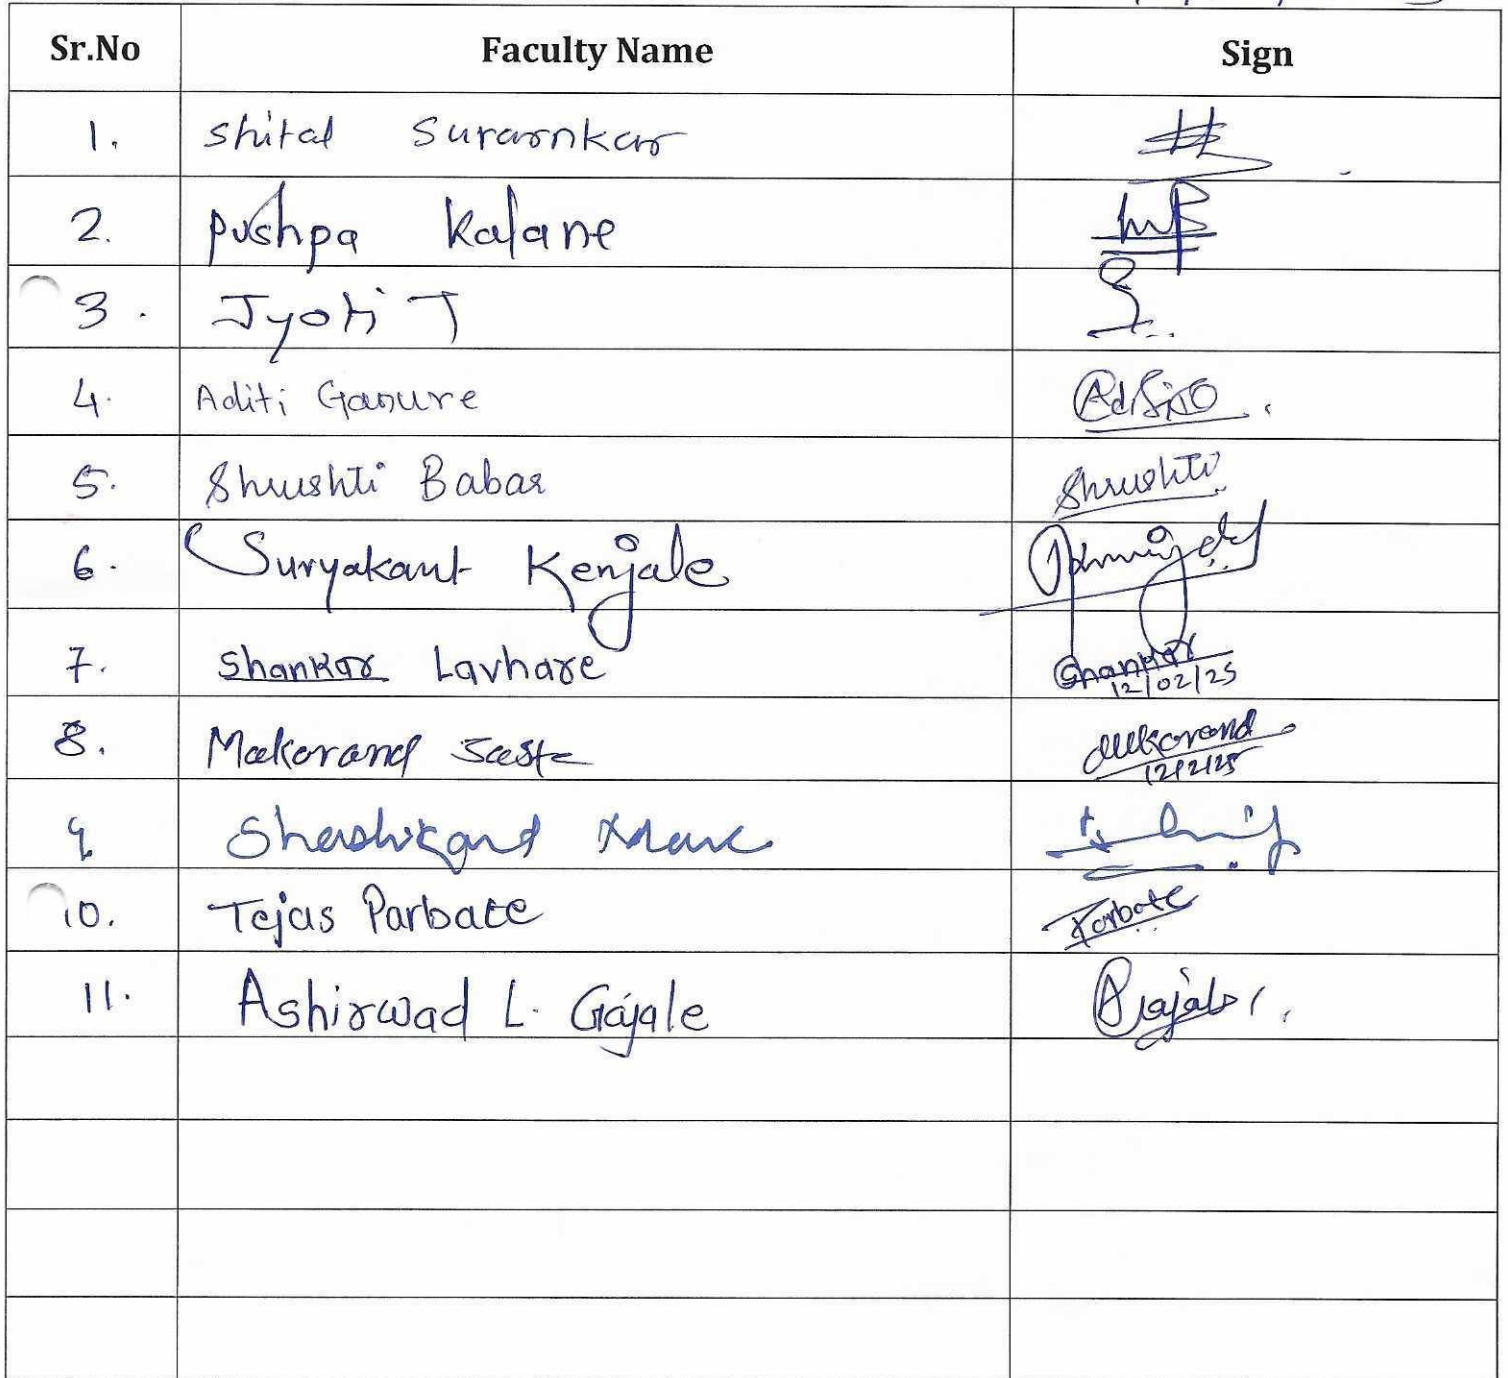 Sr.No Faculty Name Sign
1. Shital Suravnkar
2. pushpa Kalane
3. Jyoti T
4. Aditi Ganure
5. Shrushti Babar Shrushti
6. Suryakant Kenjale
7. Shankar Lavhare Shankar
12/02/25
8. Makorand Saste Makorand
12/2/25
9 Shashikant
10. Tejas Parbate Parbate
11. Ashirwad L. Gajale